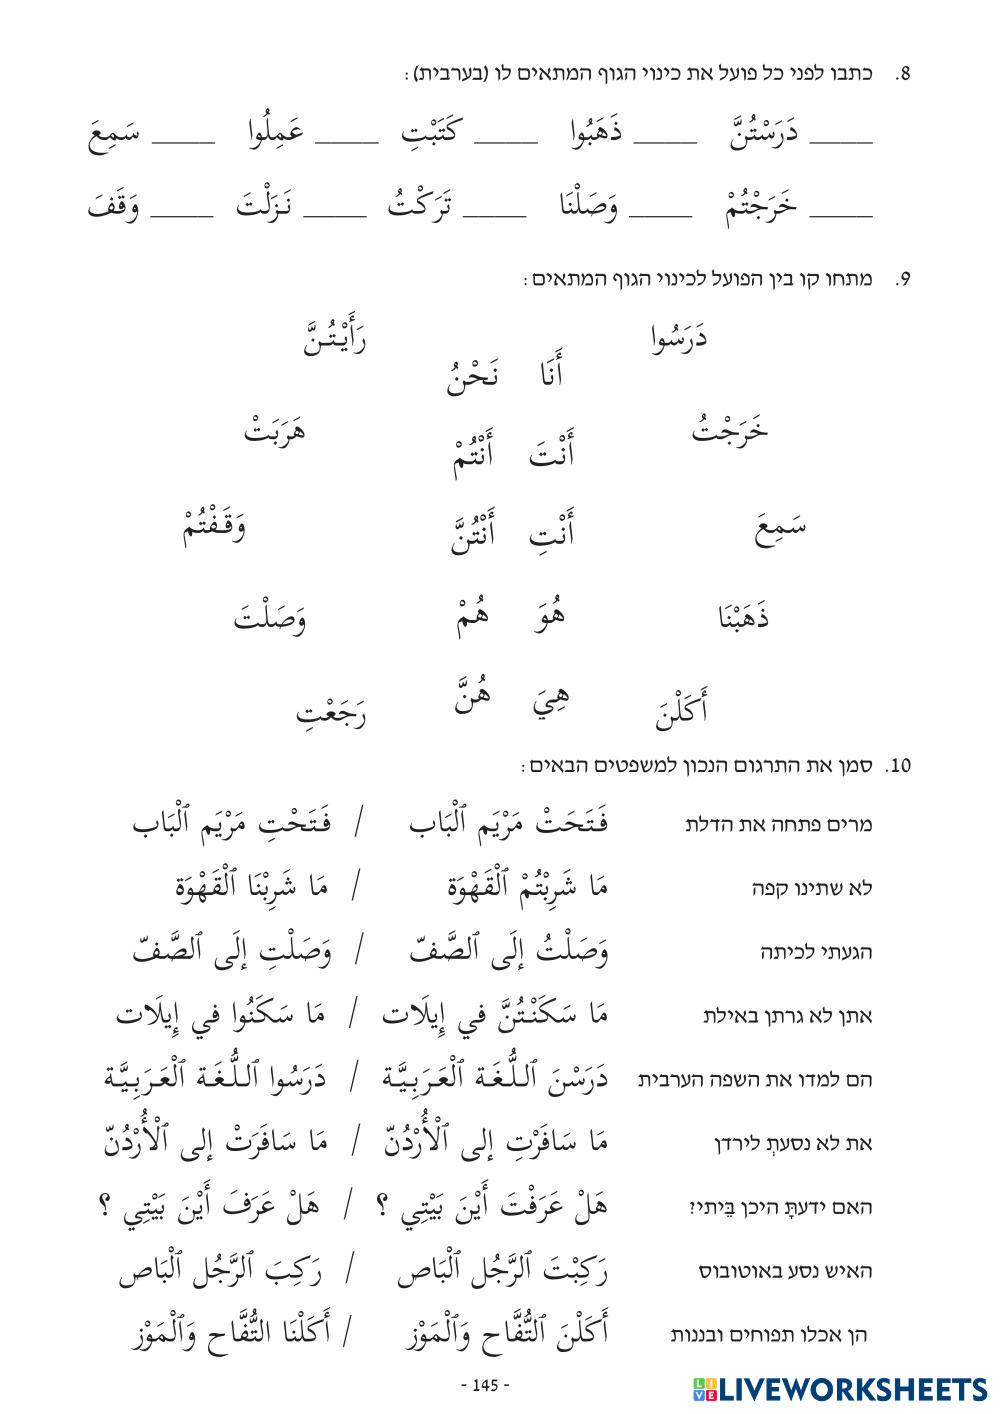 8. כתבו לפני כל פועל את כינוי הגוף המתאים לו (בערבית):
____ دَرَسْتُنَّ ____ ذَهَبُوا ____ كَتَبْتِ ____ عَمِلُوا ____ سَمِعَ
____ خَرَجْتُمْ ____ وَصَلْنَا ____ تَرَكْتُ ____ نَزَلْتَ ____ وَقَفَ
9. מתחו קו בין הפועל לכינוי הגוף המתאים:
دَرَسُوا رَأَيْتُنَّ
أَنَا نَحْنُ
خَرَجْتُ هَرَبَتْ
أَنْتَ أَنْتُمْ
سَمِعَ أَنْتِ أَنْتُنَّ وَقَفْتُمْ
ذَهَبْنَا هُوَ هُمْ وَصَلْتَ
هِيَ هُنَّ
أَكَلْنَ رَجَعْتِ
10. סמן את התרגום הנכון למשפטים הבאים:
מרים פתחה את הדלת فَتَحَتْ مَرْيَم ٱلْبَاب / فَتَحْتِ مَرْيَم ٱلْبَاب
לא שתינו קפה مَا شَرِبْتُمْ ٱلْقَهْوَة / مَا شَرِبْنَا ٱلْقَهْوَة
הגעתי לכיתה وَصَلْتُ إلَى ٱلصَّفّ / وَصَلْتِ إلَى ٱلصَّفّ
אתן לא גרתן באילת مَا سَكَنْتُنَّ في إِيلَات / مَا سَكَنُوا في إِيلَات
הם למדו את השפה הערבית دَرَسْنَ ٱللُّغَة ٱلْعَرَبِيَّة / دَرَسُوا ٱللُّغَة ٱلْعَرَبِيَّة
את לא נסעתְ לירדן مَا سَافَرْتِ إلى ٱلْأُرْدُنّ / مَا سَافَرَتْ إلى ٱلْأُرْدُنّ
האם ידעתָ היכן בֵּיתי? هَلْ عَرَفْتَ أَيْنَ بَيْتِي ؟ / هَلْ عَرَفَ أَيْنَ بَيْتِي ؟
האיש נסע באוטובוס رَكِبْتَ ٱلرَّجُل ٱلْبَاص / رَكِبَ ٱلرَّجُل ٱلْبَاص
הן אכלו תפוחים ובננות أَكَلْنَ ٱلتُّفَّاح وَٱلْمَوْز / أَكَلْنَا التُّفَّاح وَٱلْمَوْز
- 145 -
LIVE LIVEWORKSHEETS